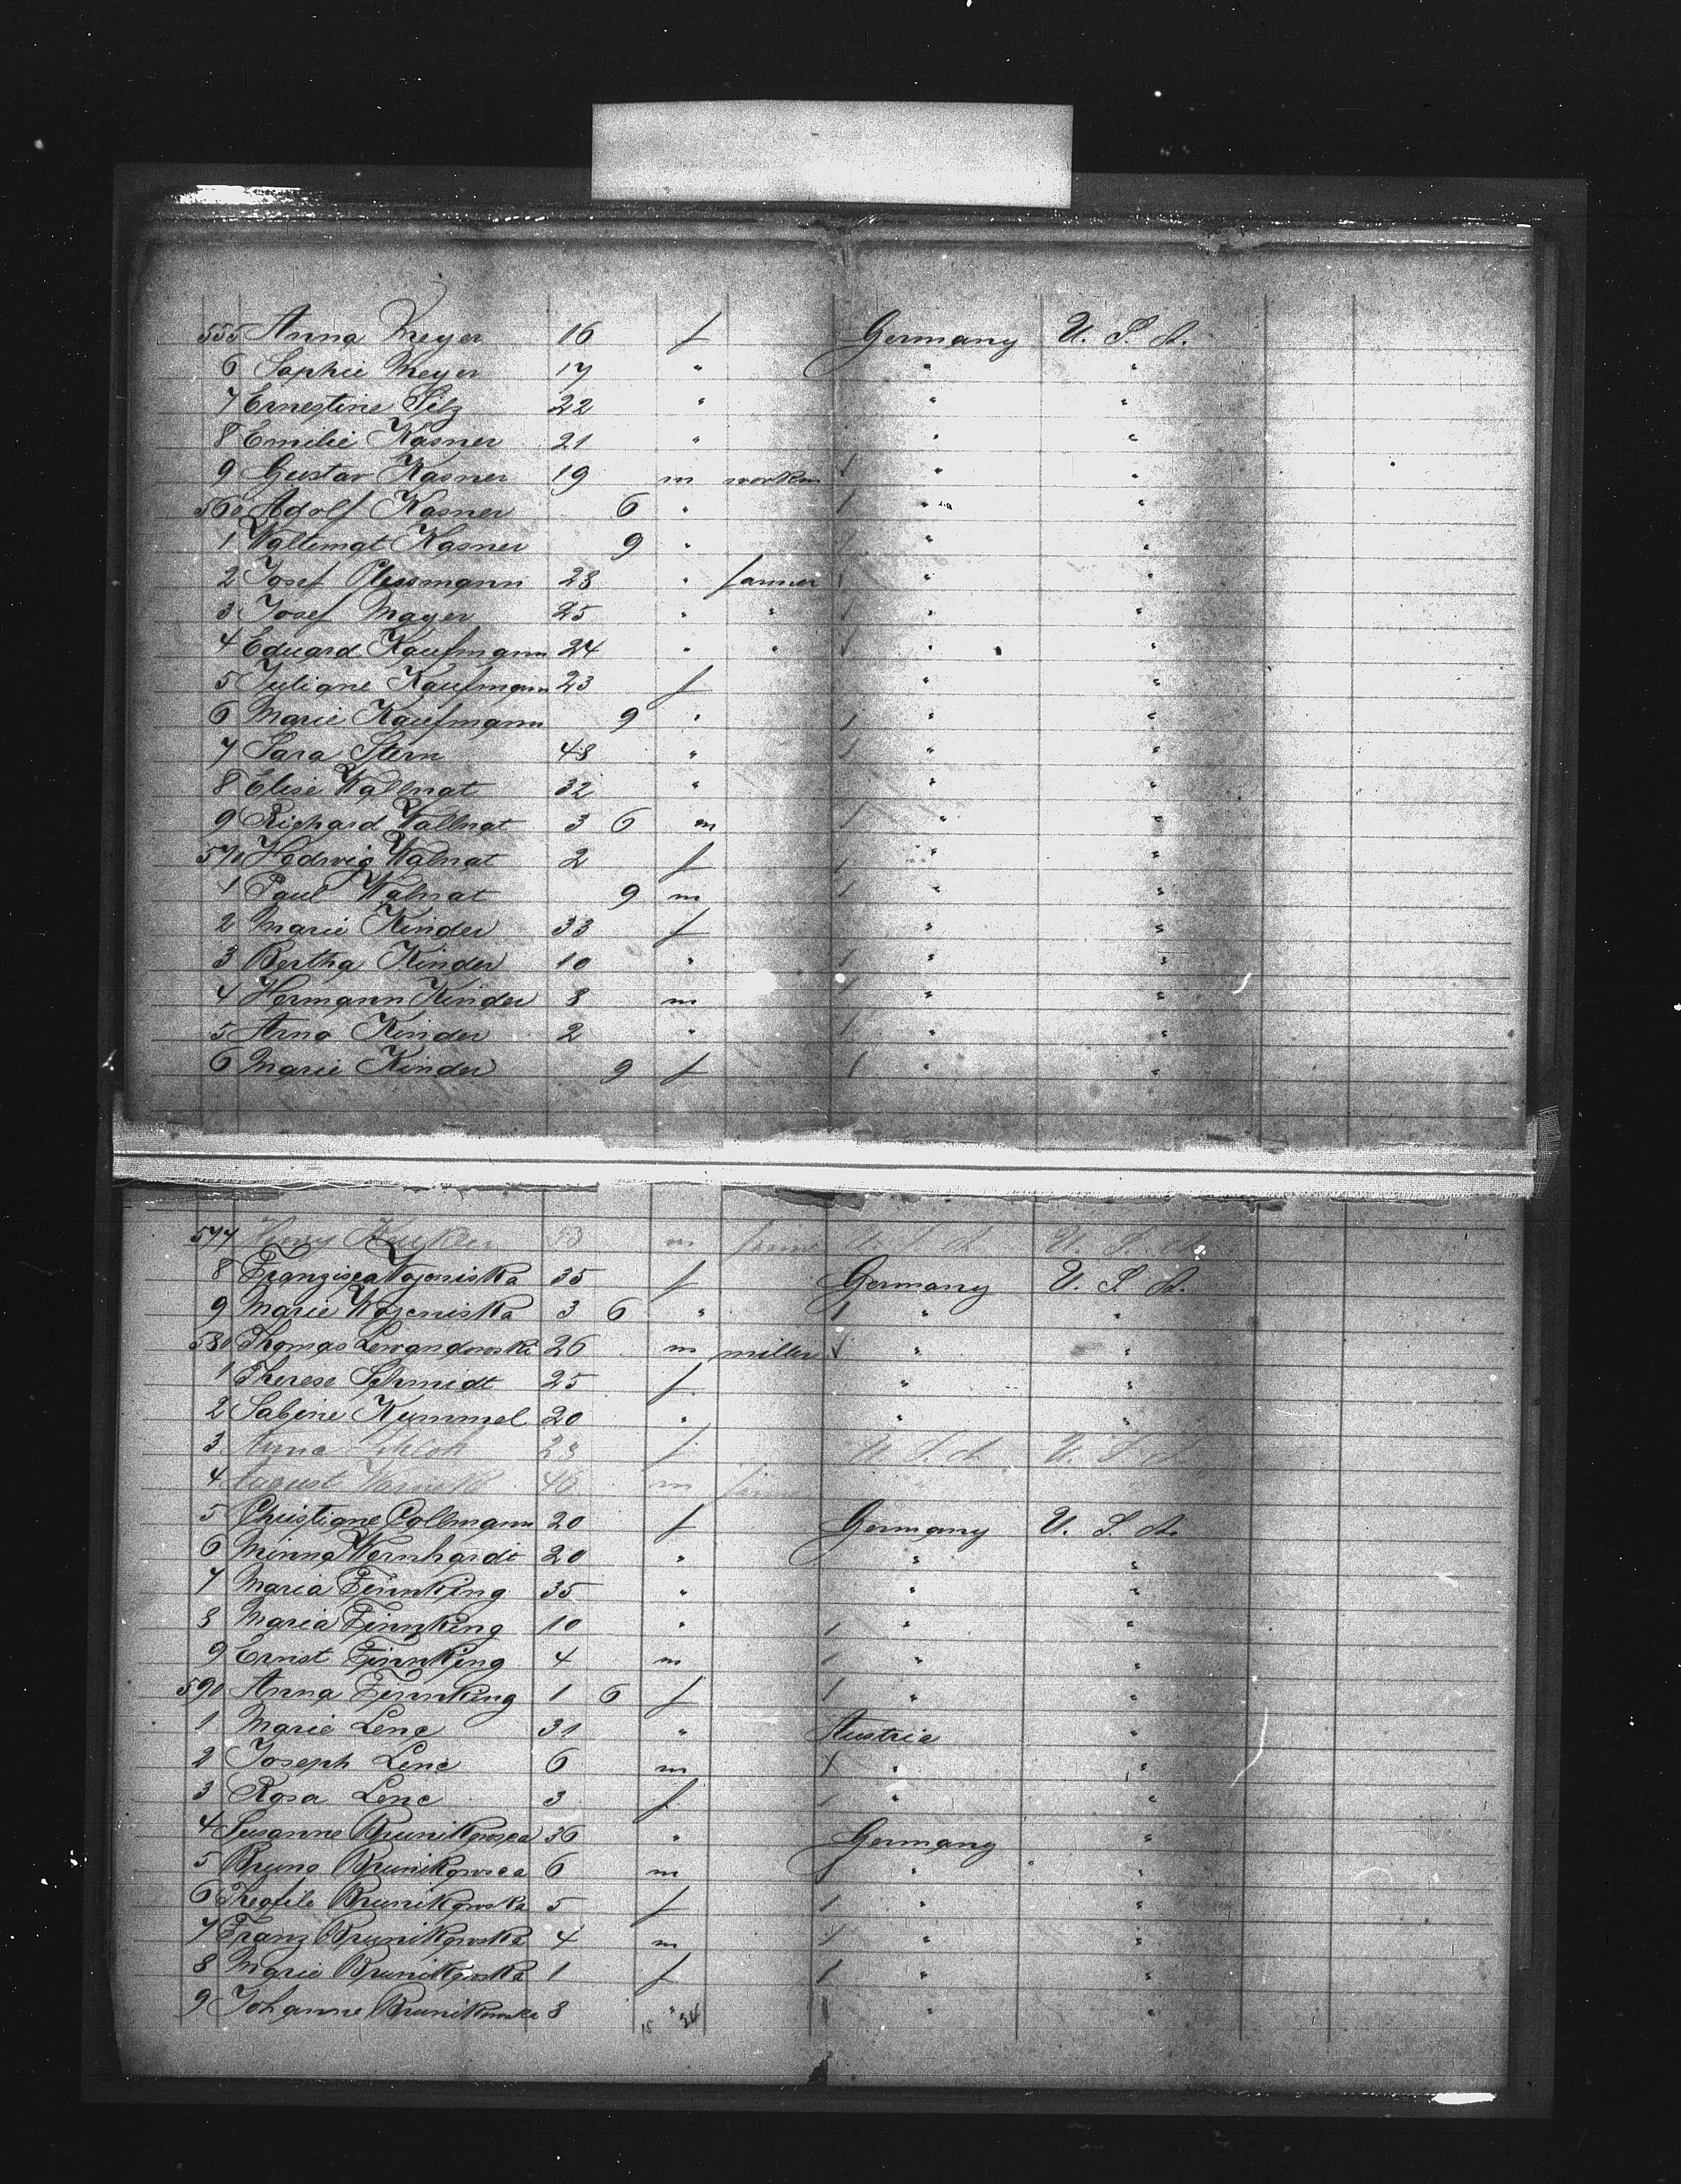 555 Anna Meyer 16 f Germany U. S. A.
6 Sophie Meyer 17 " " "
7 Ernestine Silz 22 " " "
8 Emilie Kasner 21 " " "
9 Gustav Kasner 19 m workm 1 " "
560 Adolf Kasner 6 " 1 " "
1 Waltemat Kasner 9 " 1 " "
2 Josef Plessmann 28 " farmer 1 " "
3 Josef Mayer 25 " " 1 " "
4 Eduard Kaufmann 24 " " 1 " "
5 Juliane Kaufmann 23 f " "
6 Marie Kaufmann 9 " 1 " "
7 Sara Stern 48 " 1 " "
8 Elise Wallnat 32 " " "
9 Richard Wallnat 3 6 m 1 " "
570 Hedwig Walnat 2 f 1 " "
1 Paul Walnat 9 m 1 " "
2 Marie Kinder 33 f " "
3 Bertha Kinder 10 " 1 " "
4 Hermann Kinder 8 m 1 " "
5 Arno Kinder 2 " 1 " "
6 Marie Kinder 9 f 1 " "
577 m U. S. A. U. S. A.
8 Franzisca Wojeniska 35 f Germany U. S. A.
9 Marie Wojeniska 3 6 " 1 " "
580 Thomas Lewandowski 26 m miller 1 " "
1 Therese Schmidt 25 f " "
2 Sabine Kummel 20 " " "
3 Anna 28 f U. S. A. U. S. A.
4 August 46 m
5 Christiane Collmann 20 f Germany U. S. A.
6 Minna Wernhardi 20 " " "
7 Maria Finnking 35 " " "
8 Maria Finnking 10 " 1 " "
9 Ernst Finnking 4 m 1 " "
590 Anna Finnking 1 6 f 1 " "
1 Marie Lenc 31 " Austria "
2 Joseph Lenc 6 m 1 " "
3 Rosa Lenc 3 f 1 " "
4 Susanne Brunikowsca 36 " Germany "
5 Bruno Brunikowsca 6 m 1 " "
6 Theofile Brunikowska 5 f 1 " "
7 Franz Brunikowska 4 m 1 " "
8 Marie Brunikowska 1 f 1 " "
9 Johanne Brunikowska 8 " 1 " "
15 34